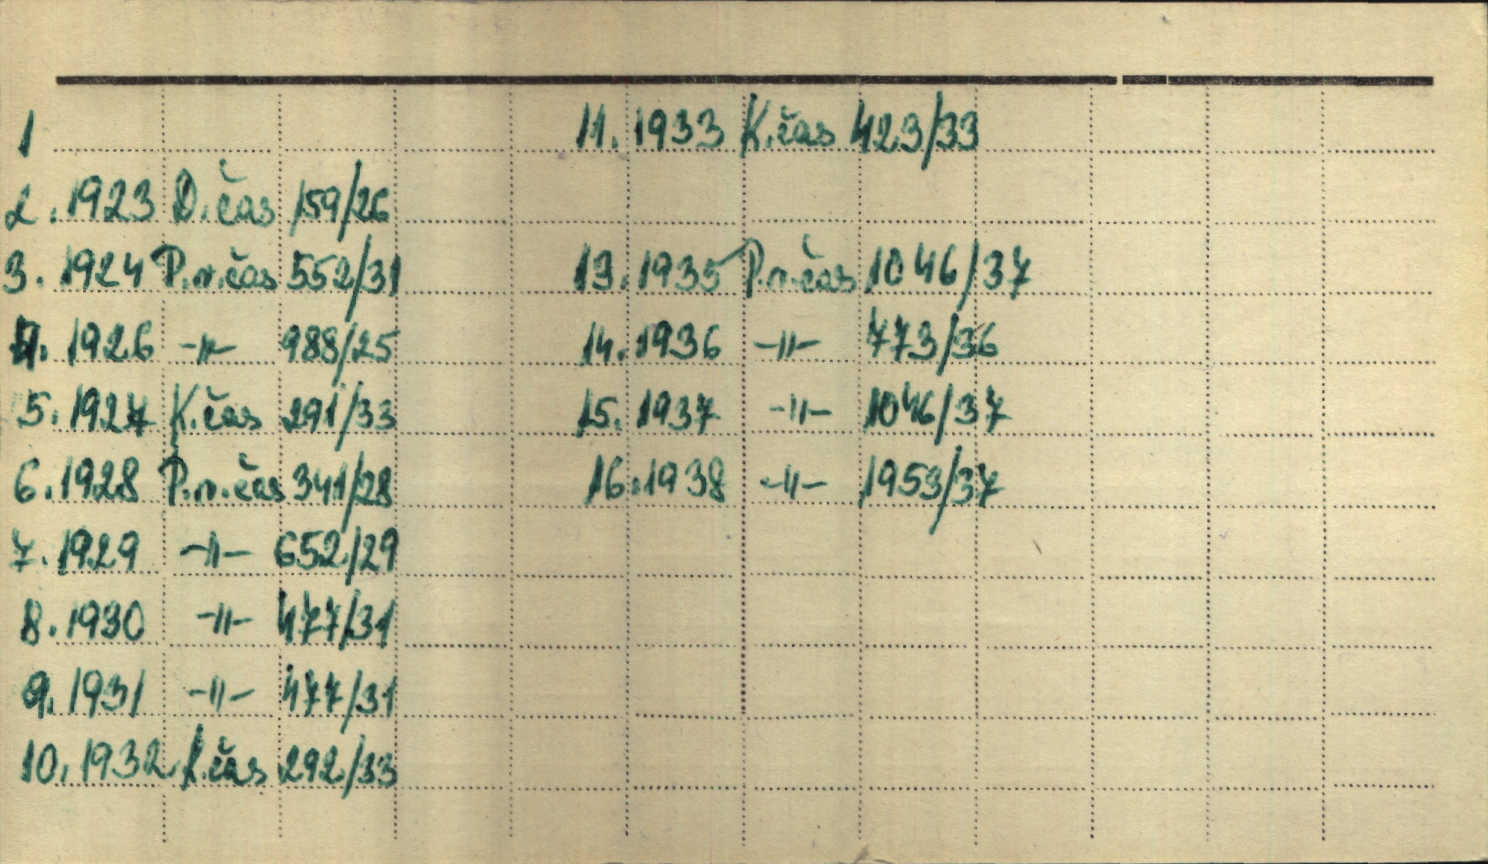 1
2. 1923 D. čas 159/26
3. 1924 P.n.čas 552/31
4. 1926 -"- 988/25
5. 1927 K.čas 291/33
6. 1928 P.n.čas 341/28
7. 1929 -"- 652/29
8. 1930 -"- 477/31
9. 1931 -"- 477/31
10. 1932 K.čas 292/33
11. 1933 K.čas 423/33
13. 1935 P.n.čas 1046/37
14. 1936 -"- 773/36
15. 1937 -"- 1046/37
16. 1938 -"- 1953/37